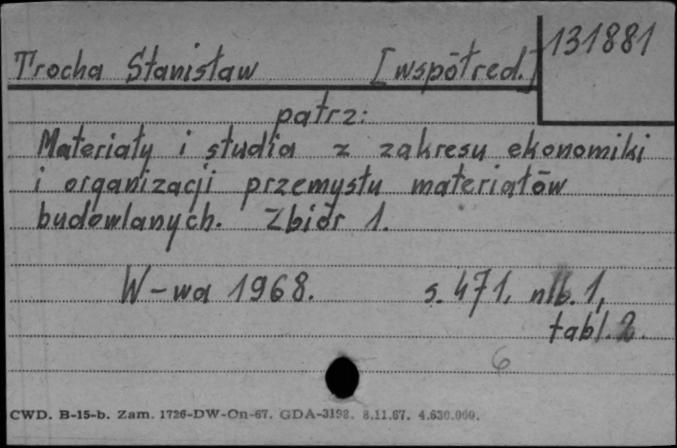 131881
Trocha Stanisław [współred.]
patrz:
Materiały i studia z zakresu ekonomiki
i organizacji przemysłu materiałów
budowlanych. Zbiór 1.
W-wa 1968. s. 471, nlb. 1,
tabl. 2.
6
CWD. B-15-b. Zam. 1726-DW-On-67. GDA-3198. 8.11.67. 4.630.000.